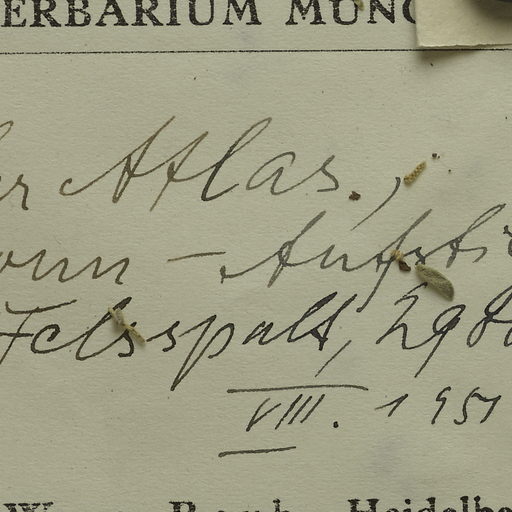 ERBARIUM MUNC
er Atlas.,
onn - Aufsti
Felsspalt, 298
VIII. 1951
W Rauh Heidelbe